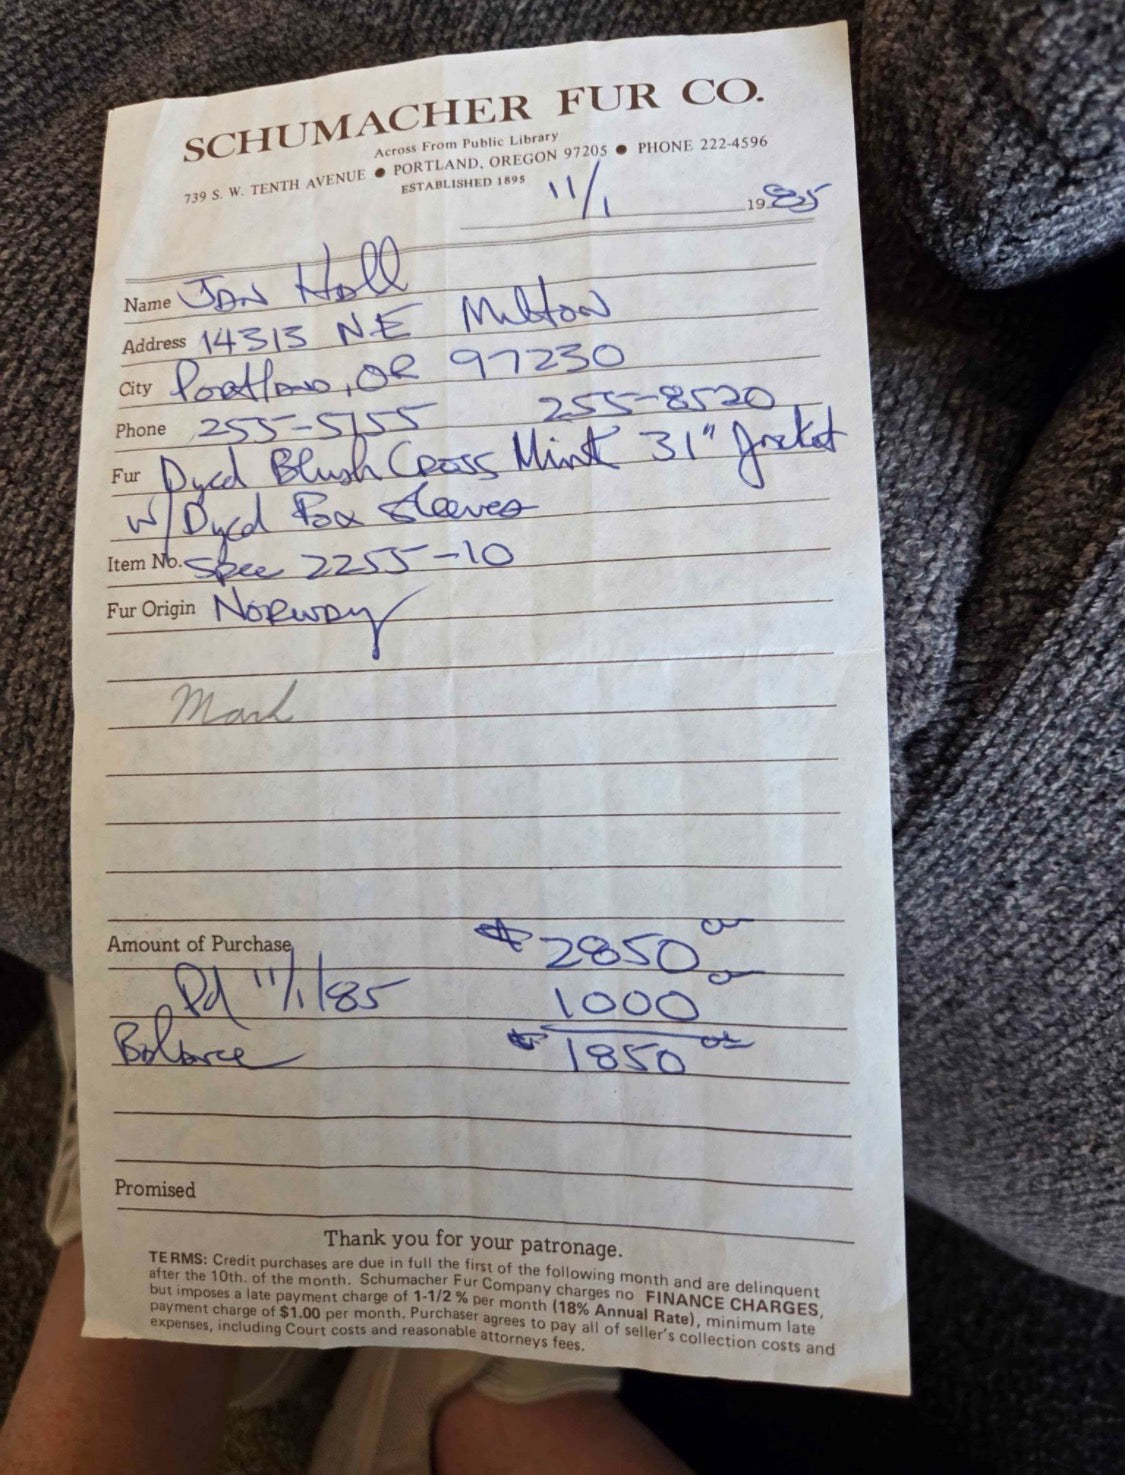 SCHUMACHER FUR CO.
Across From Public Library
739 S. W. TENTH AVENUE ● PORTLAND, OREGON 97205 ● PHONE 222-4596
ESTABLISHED 1895
11/1 1985
Name Jan Hall
Address 14313 NE Milton
City Portland, OR 97230
Phone 255-5155 255-8520
Fur Dyed Blush Cross Mink 31" Jacket
w/ Dyed Fox Sleeves
Item No. Spec 2255-10
Fur Origin Norway
Mark
Amount of Purchase $2850 00
Pd 11/1/85 1000 00
Balance $1850 00
Promised
Thank you for your patronage.
TERMS: Credit purchases are due in full the first of the following month and are delinquent
after the 10th. of the month. Schumacher Fur Company charges no FINANCE CHARGES,
but imposes a late payment charge of 1-1/2 % per month (18% Annual Rate), minimum late
payment charge of $1.00 per month. Purchaser agrees to pay all of seller's collection costs and
expenses, including Court costs and reasonable attorneys fees.